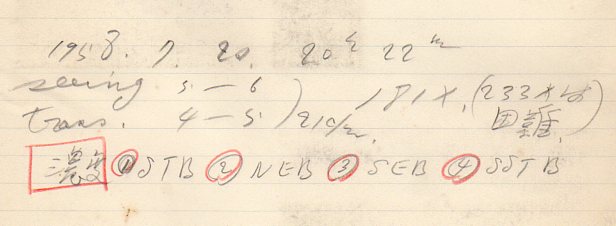 1958. 7. 20. 20h 22m
seeing 5 – 6
trans. 4 – 5 ) 21cm. 181×. (233×は困難)
濃度 ①STB ②NEB ③SEB ④SSTB